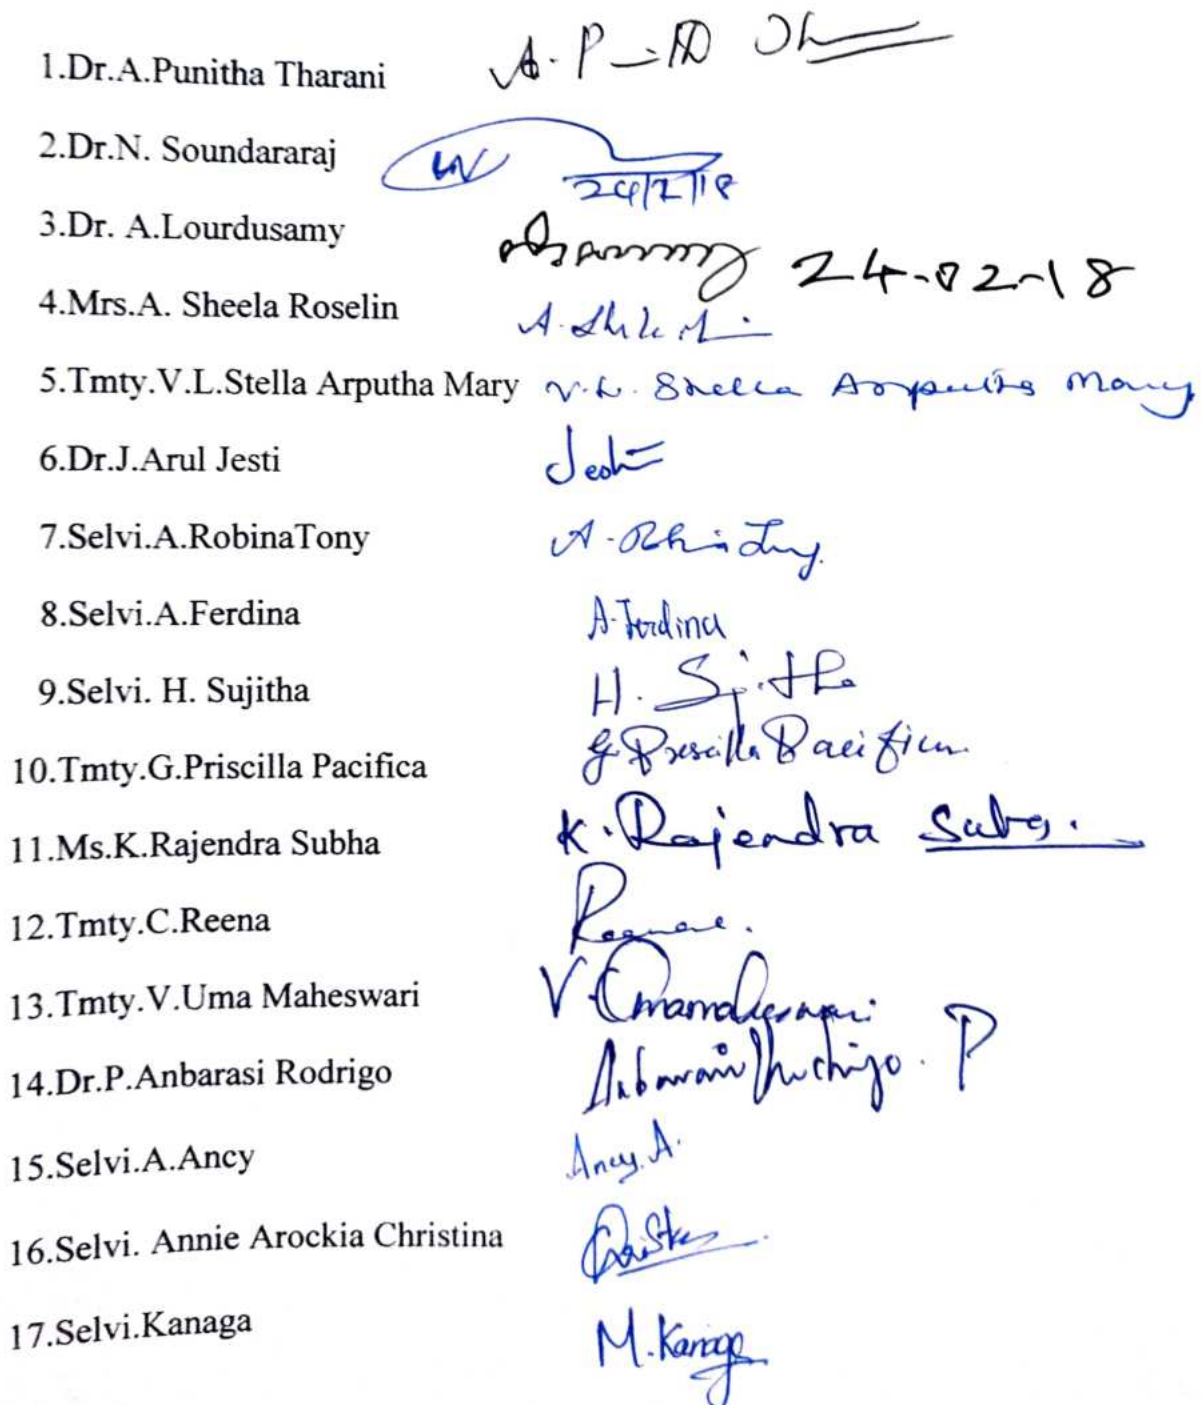 1.Dr.A.Punitha Tharani
2.Dr.N. Soundararaj 24/2/18
3.Dr. A.Lourdusamy 24-02-18
4.Mrs.A. Sheela Roselin A.
5.Tmty.V.L.Stella Arputha Mary V.L. Stella Arputha Mary
6.Dr.J.Arul Jesti Jesti
7.Selvi.A.RobinaTony A.
8.Selvi.A.Ferdina A.Ferdina
9.Selvi. H. Sujitha H. Sujitha
10.Tmty.G.Priscilla Pacifica G Priscilla Pacifica
11.Ms.K.Rajendra Subha K.Rajendra Subha.
12.Tmty.C.Reena
13.Tmty.V.Uma Maheswari V.Umamaheswari
14.Dr.P.Anbarasi Rodrigo Anbarasi Rodrigo. P
15.Selvi.A.Ancy Ancy.A.
16.Selvi. Annie Arockia Christina
17.Selvi.Kanaga M.Kanaga